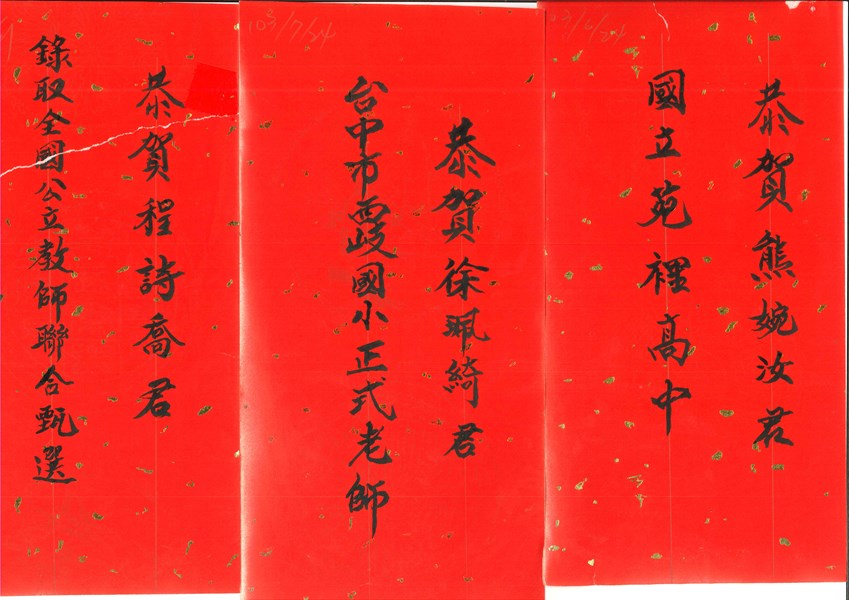 恭賀熊婉汝君
國立苑裡高中
103/7/24
恭賀徐珮綺君
台中市西岐國小正式老師
恭賀程詩喬君
錄取全國公立教師聯合甄選